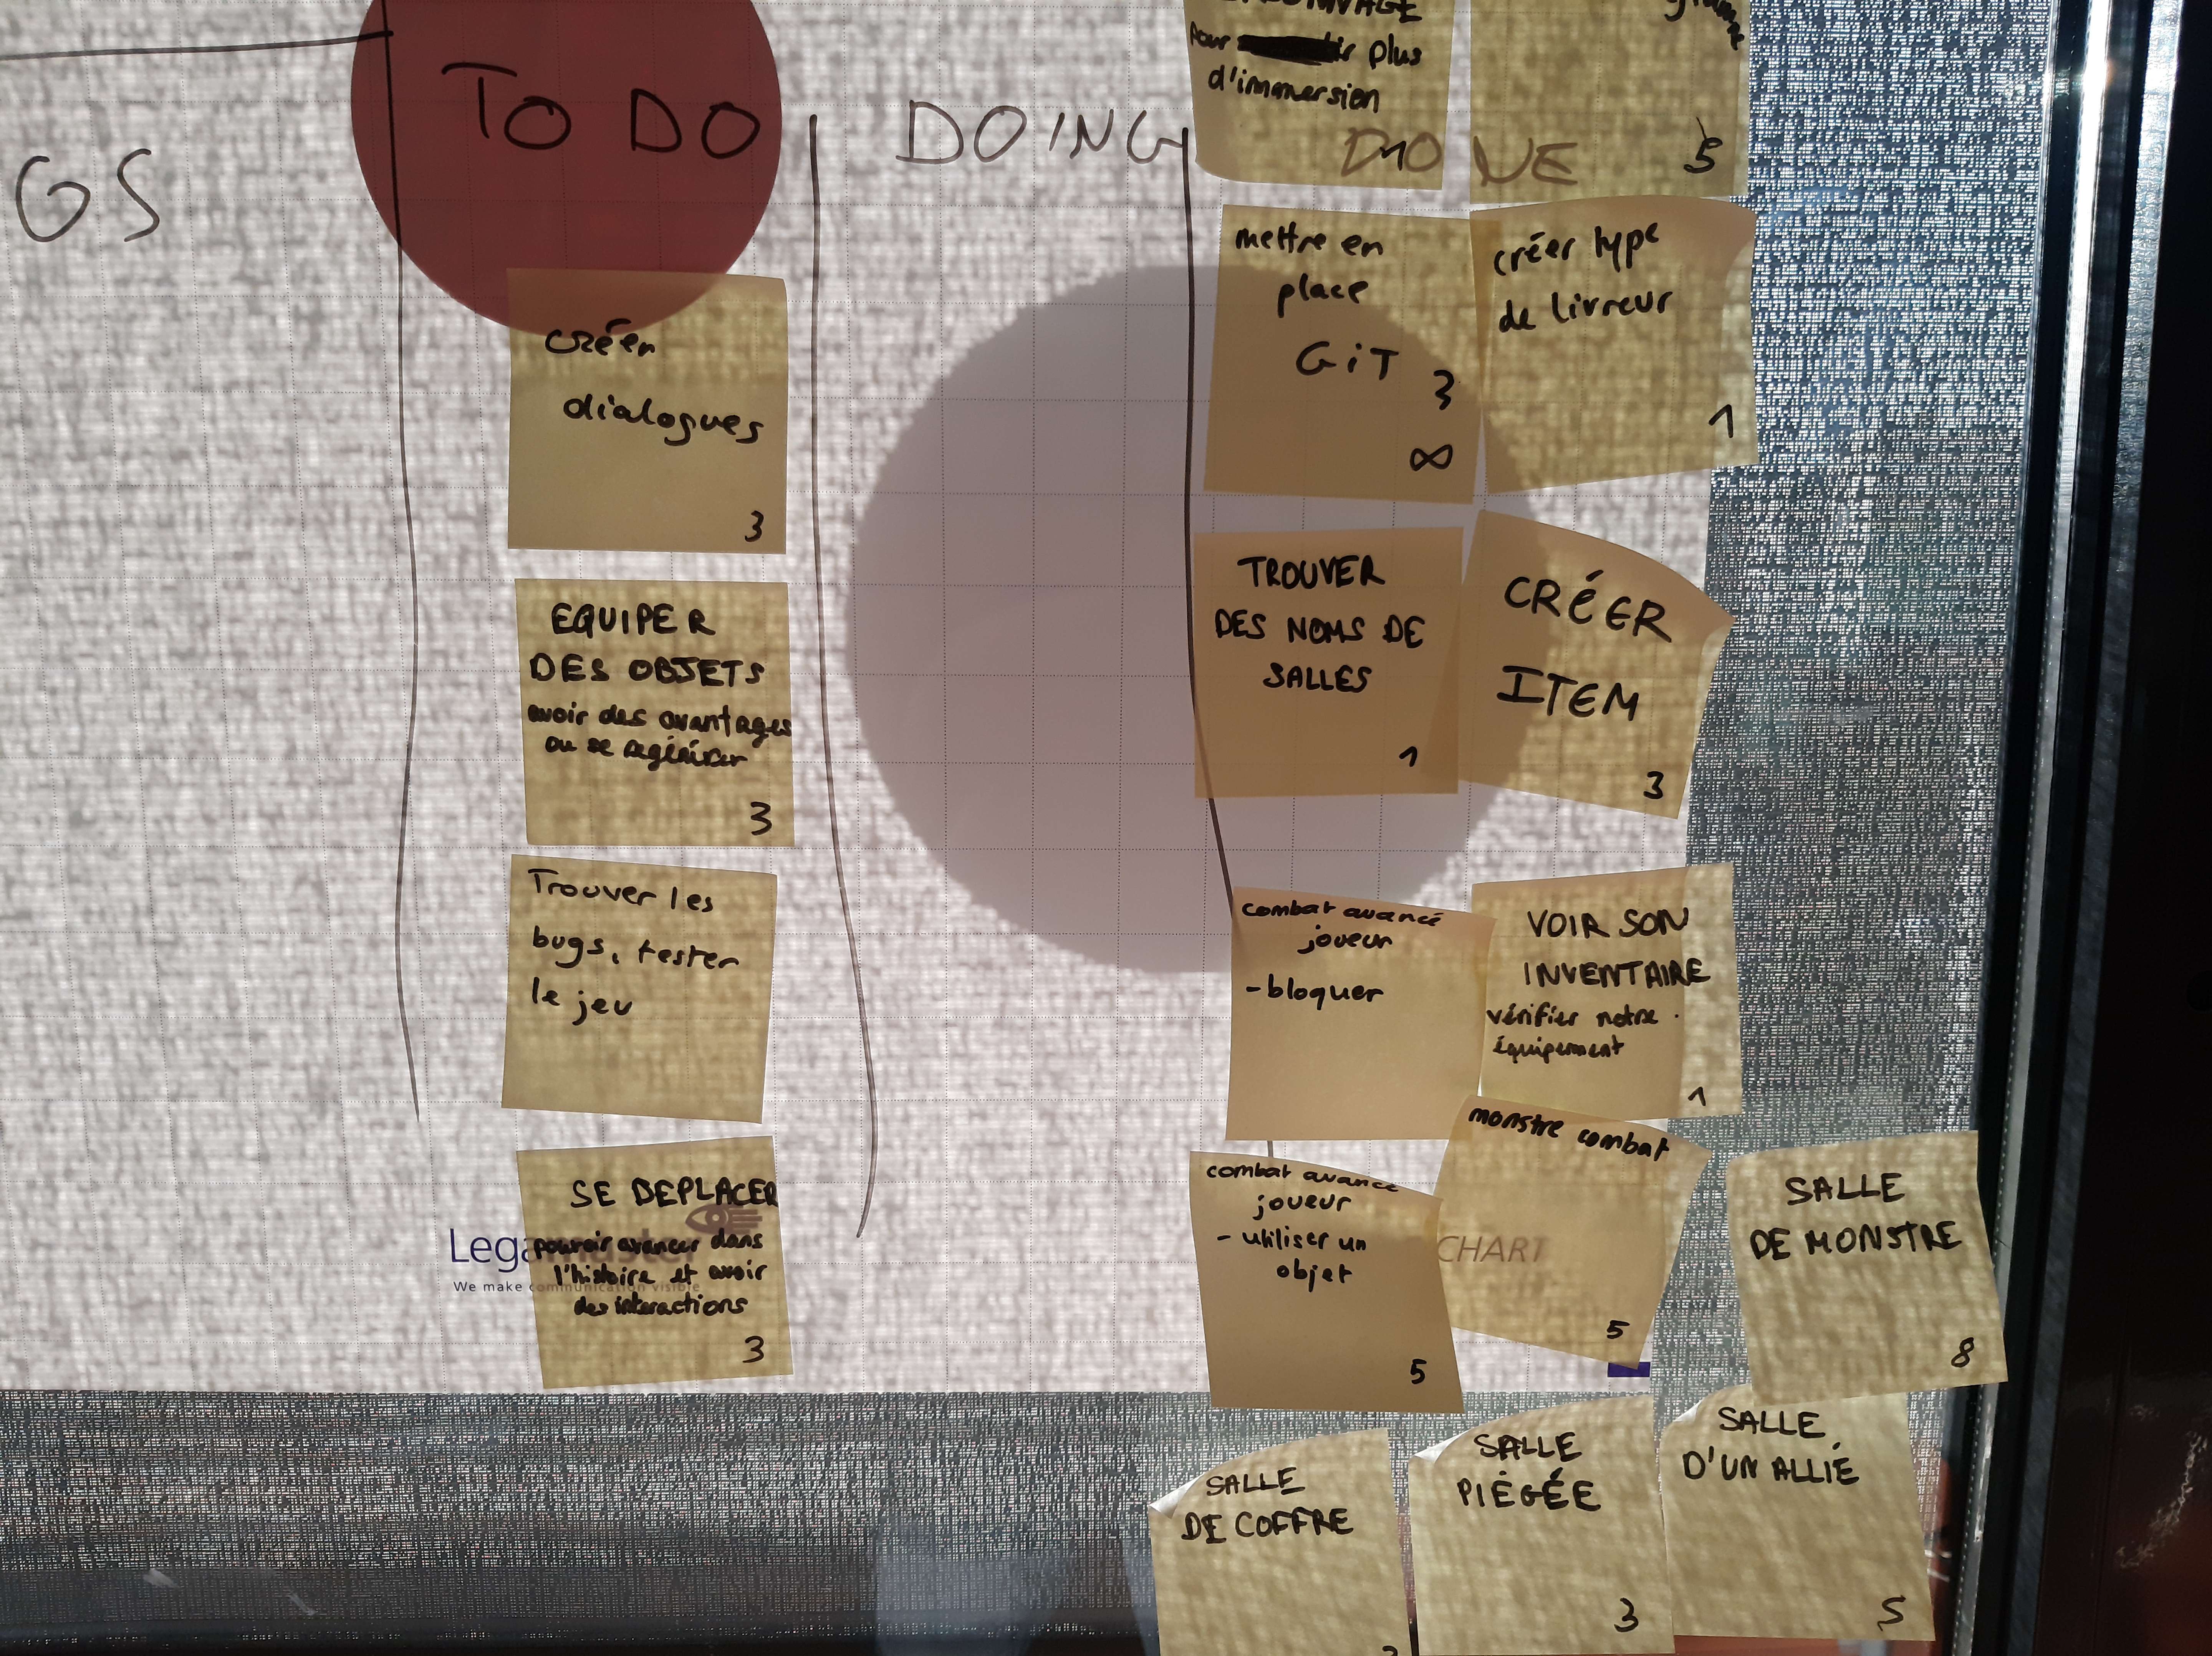 GS
TO DO
créer
dialogues
3
EQUIPER
DES OBJETS
avoir des avantages
ou se régénérer
3
Trouver les
bugs, tester
le jeu
SE DEPLACER
pouvoir avancer dans
l'histoire et avoir
des interactions
3
We make communication visible
DOING
DONE
pour plus
d'immersion
5
mettre en
place
GiT
3
∞
créer type
de livreur
1
TROUVER
DES NOMS DE
SALLES
1
CRÉER
ITEM
3
combat avancé
joueur
- bloquer
VOIR SON
INVENTAIRE
vérifier notre
équipement
1
combat avancé
joueur
- utiliser un
objet
5
monstre combat
CHART
5
SALLE
DE MONSTRE
8
SALLE
DE COFFRE
SALLE
PIÉGÉE
3
SALLE
D'UN ALLIÉ
5